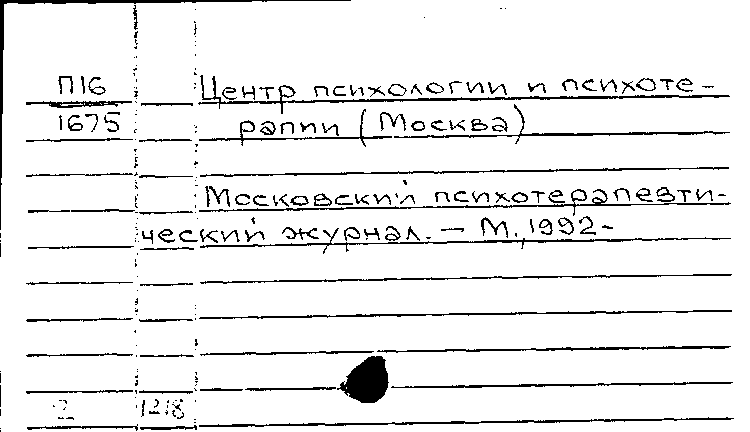 П16 Центр психологии и психоте-
1675 рапии (Москва)
Московский психотерапевти-
ческий журнал. — М., 1992-
2 1218